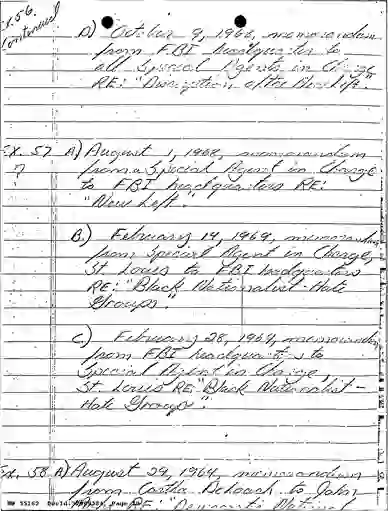 Ex. 56.
Continued
D) October 9, 1968, memorandum
from FBI headquarters to
all Special Agents in Charge
RE: "Disruption of the New Left".
Ex. 57 A) August 1, 1968, memorandum
from a Special Agent in Charge
to FBI headquarters RE:
"New Left."
?
B.) February 14, 1969, memorandum
from Special Agent in Charge,
St Louis to FBI headquarters
RE: "Black Nationalist-Hate
Groups".
C.) February 28, 1969, memorandum
from FBI headquarters to
Special Agent in Charge,
St Louis RE: "Black Nationalist-
Hate Groups".
Ex. 58 A) August 29, 1964, memorandum
from Cartha DeLoach to John
RE: "Democratic National